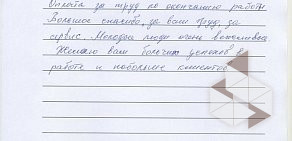 Оплата за труд по окончанию работы.
Большое спасибо за ваш труд, за
сервис. Молодые люди очень вежливые
Желаю вам больших успехов в
работе и побольше клиентов